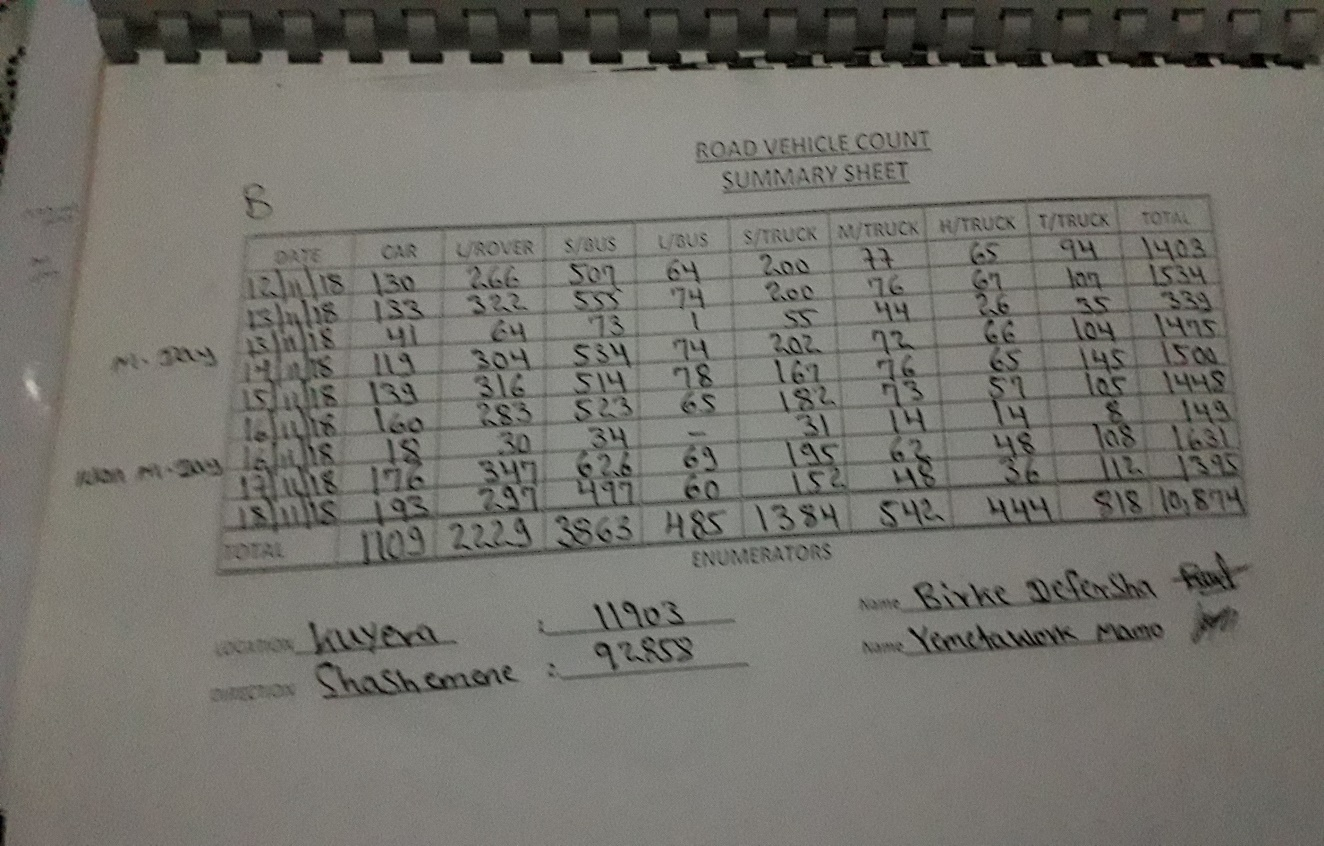 ROAD VEHICLE COUNT
SUMMARY SHEET
B
DATE CAR L/ROVER S/BUS L/BUS S/TRUCK M/TRUCK H/TRUCK T/TRUCK TOTAL
12/11/18 130 266 507 64 200 77 65 94 1403
13/11/18 133 322 555 74 200 76 67 107 1534
13/11/18 41 64 73 1 55 44 26 35 339
M. Day 14/11/18 119 304 534 74 202 72 66 104 1475
15/11/18 139 316 514 78 167 76 65 145 1500
16/11/18 160 283 523 65 182 73 57 105 1448
16/11/18 18 30 34 – 31 14 14 8 149
Non M. Day 17/11/18 176 347 626 69 195 62 48 108 1631
18/11/18 193 297 497 60 152 48 36 112 1395
TOTAL 1109 2229 3863 485 1384 542 444 818 10,874
ENUMERATORS
LOCATION Kuyera : 11903 Name Birke Defersha
DIRECTION Shashemene : 92858 Name Yemetawork Mamo